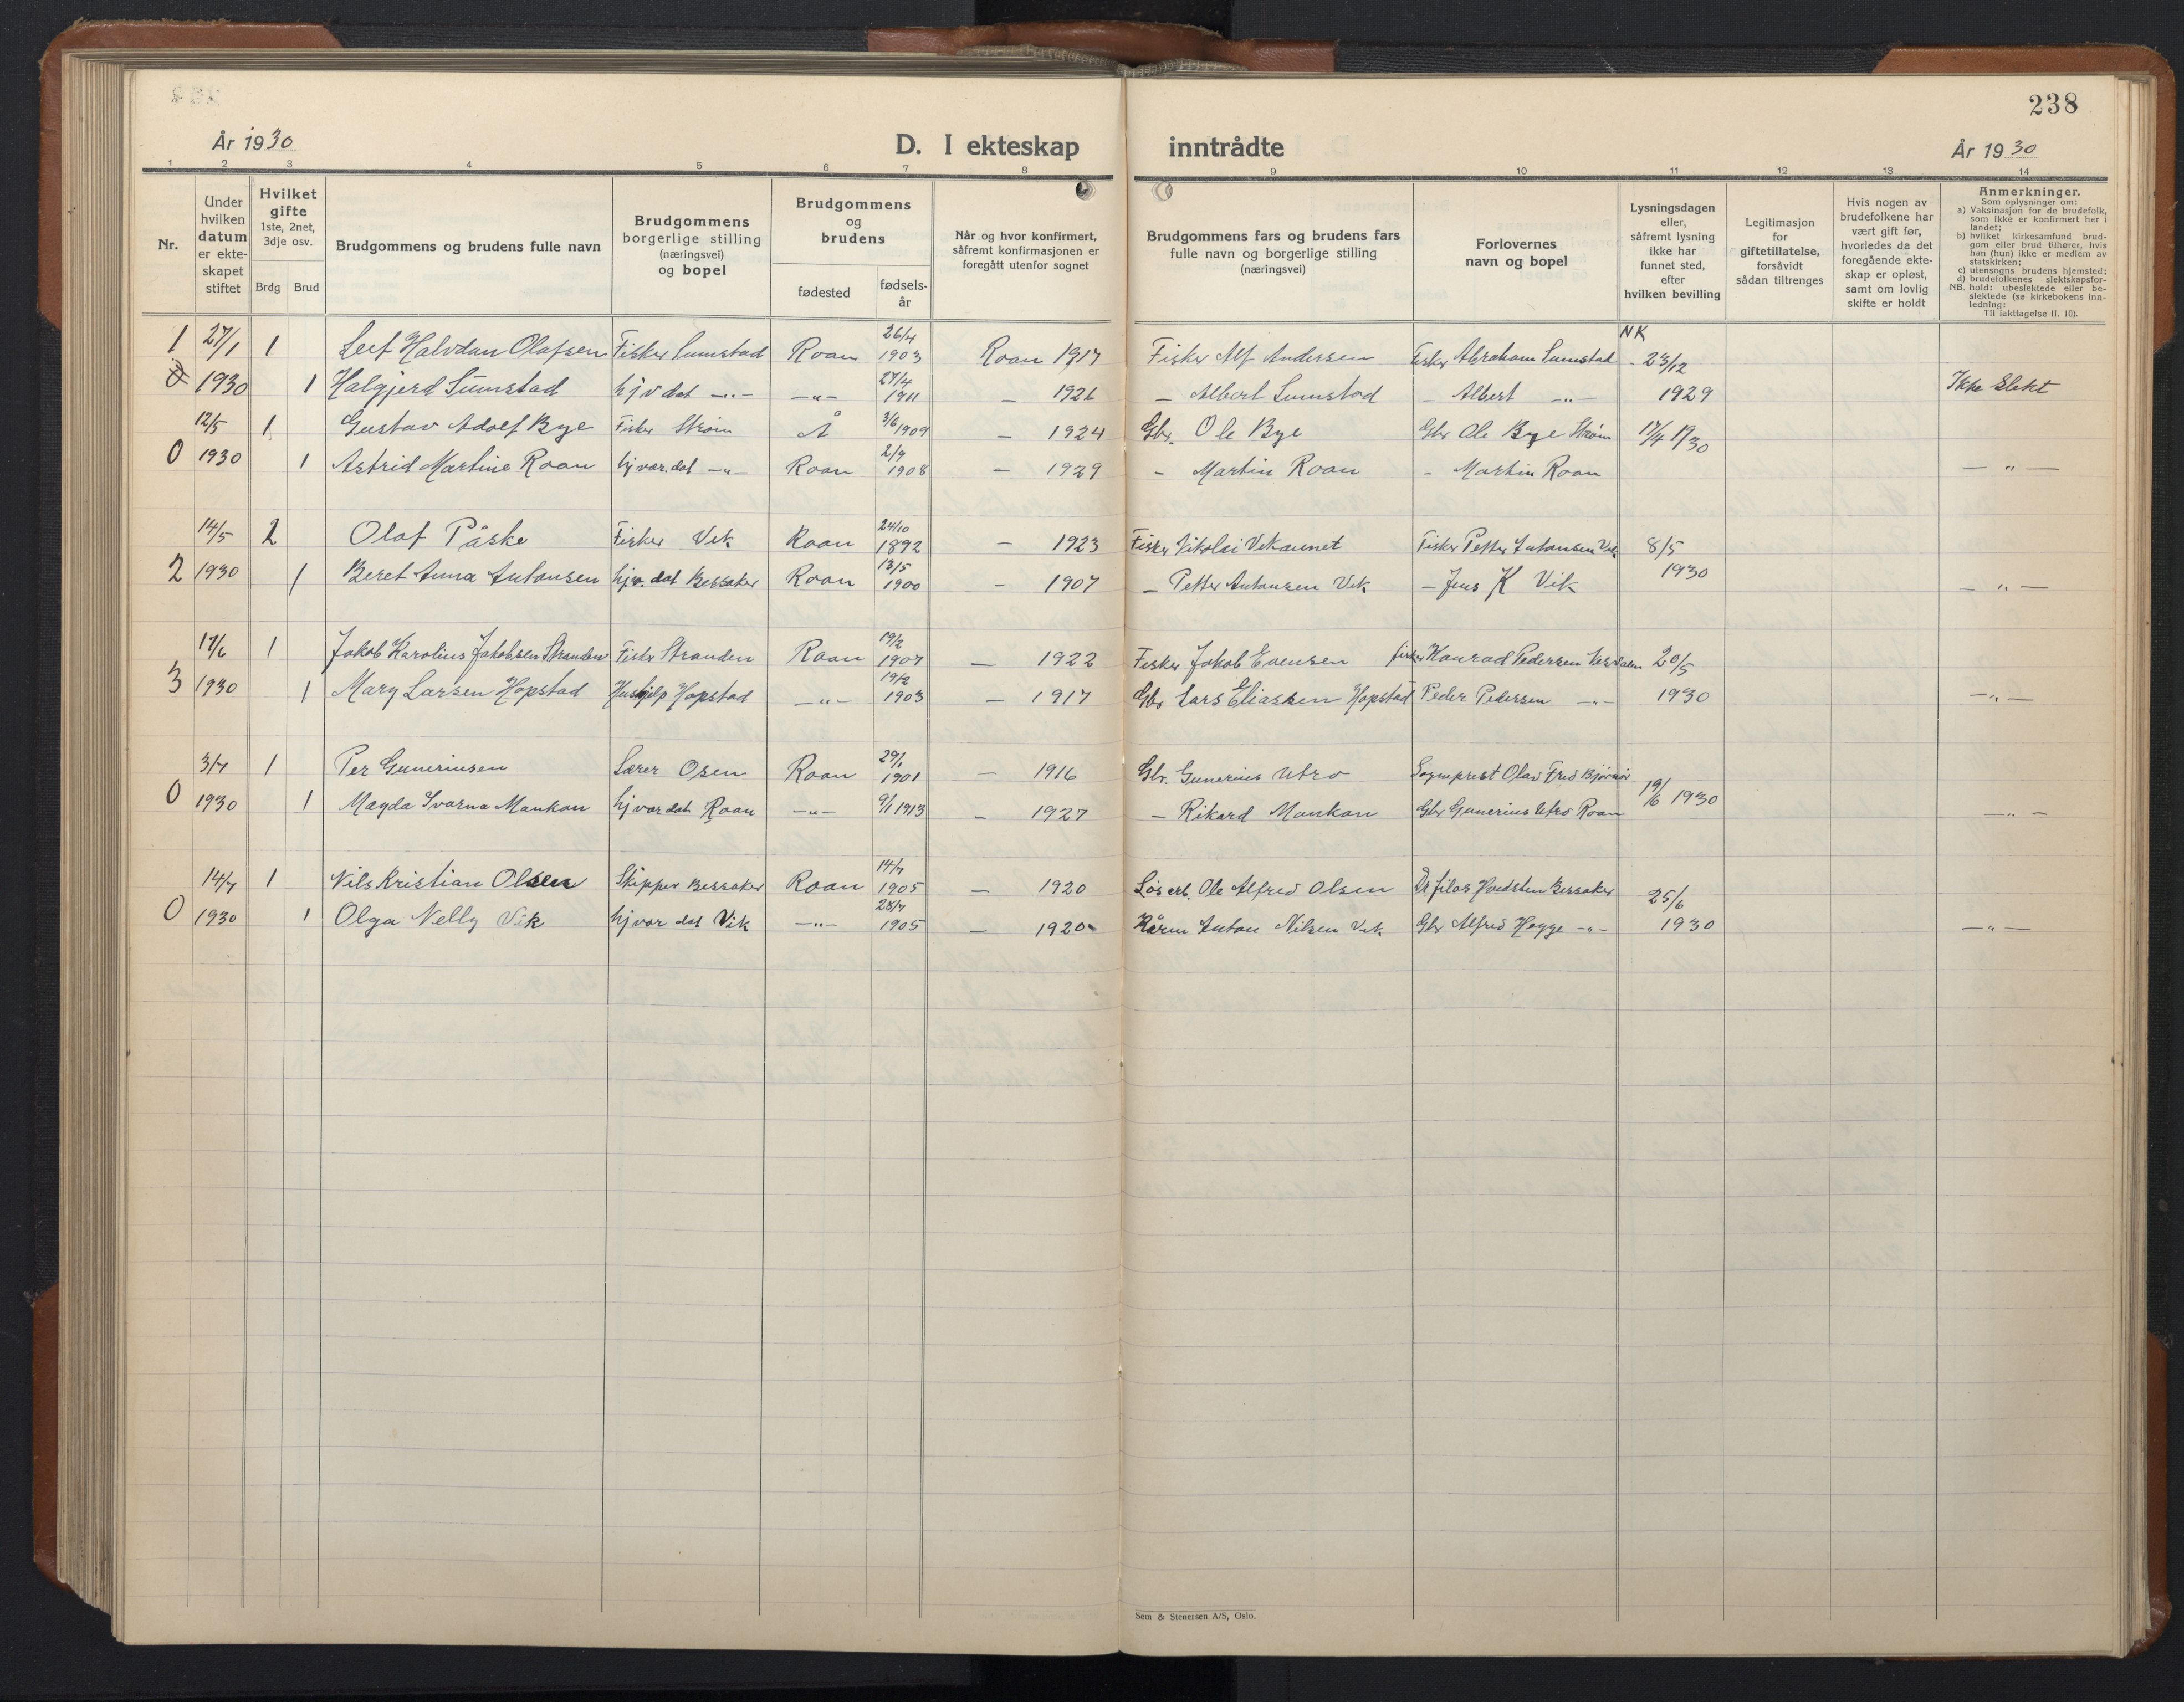 238
År 1930
D. I ekteskap inntrådte
År 1930
1 2 3 4 5 6 7 8 9 10 11 12 13 14
Nr.
Under hvilken datum er ekte-skapet stiftet
Hvilket gifte
1ste, 2net, 3dje osv.
Brdg Brud
Brudgommens og brudens fulle navn
Brudgommens borgerlige stilling (næringsvei) og bopel
Brudgommens og brudens
fødested
fødsels-år
Når og hvor konfirmert, såfremt konfirmasjonen er foregått utenfor sognet
Brudgommens fars og brudens fars fulle navn og borgerlige stilling (næringsvei)
Forlovernes navn og bopel
Lysningsdagen eller, såfremt lysning ikke har funnet sted, efter hvilken bevilling
Legitimasjon for giftetillatelse, forsåvidt sådan tiltrenges
Hvis nogen av brudefolkene har vært gift før, hvorledes da det foregående ekte-skap er opløst, samt om lovlig skifte er holdt
Anmerkninger.
Som oplysninger om:
a) Vaksinasjon for de brudefolk, som ikke er konfirmert her i landet;
b) hvilket kirkesamfund brud-gom eller brud tilhører, hvis han (hun) ikke er medlem av statskirken;
c) utensogns brudens hjemsted;
d) brudefolkenes slektskapsfor-hold: ubeslektede eller be-slektede (se kirkebokens inn-ledning:
NB.
Til iakttagelse II. 10).
1 27/1 1 Leif Halvdan Olafsen Fisker Sumstad Roan 26/4 1903 Roan 1917 Fisker Alf Andersen Fisker Abraham Sumstad NK - 23/12
0 1930 1 Halgjerd Sumstad hjv dat -"- -"- 27/4 1911 - 1926 - Albert Sumstad - Albert -"- 1929 Ikke Slekt
12/5 1 Gustav Adolf Bye Fisker Strøm Å 3/6 1909 - 1924 Gbr. Ole Bye Gbr Ole Bye Strøm 17/4 1930
0 1930 1 Astrid Martine Roan hj vær. dat -"- Roan 2/9 1908 - 1929 - Martin Roan - Martin Roan -"-
14/5 2 Olaf Påske Fisker Vik Roan 24/10 1892 - 1923 Fisker Nikolai Vikaunet Fisker Petter Antonsen Vik 8/5
2 1930 1 Beret Anna Antonsen hjv. dat Bessaker Roan 13/5 1900 - 1907 - Petter Antonsen Vik - Jens K Vik 1930 -"-
17/6 1 Jakob Karolius Jakobsen Stranden Fisker Stranden Roan 19/2 1907 - 1922 Fisker Jakob Evensen fisker Konrad Pedersen 20/5
3 1930 1 Mary Larsen Hopstad Hushjelp Hopstad -"- 19/2 1903 - 1917 Gbr Lars Eliassen Hopstad Peder Pedersen -"- 1930 -"-
3/7 1 Per Guneriusen Lærer Osen Roan 29/1 1901 - 1916 Gbr. Gunerius Utro Sogneprest Olav Fred Bjørnør 19/6 1930
0 1930 1 Magda Svarna Mankan hj vær dat Roan -"- 9/1 1913 - 1927 - Rikard Mankan Gbr Gunerius Utro Roan -"-
14/7 1 Nils Kristian Olsen Skipper Bessaker Roan 14/7 1905 - 1920 Løs arb. Ole Alfred Olsen Bessaker 25/6
0 1930 1 Olga Nelly Vik hj vær dat Vik -"- 28/7 1905 - 1920 Anton Nilsen Vik Gbr Alfred Hegge -"- 1930 -"-
Sem & Stenersen A/S, Oslo.